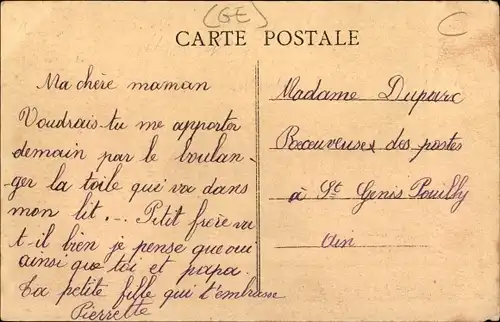 (GE)
C
CARTE POSTALE
Ma chère maman
Voudrais-tu me apporter
demain par le boulan-
ger la toile qui va dans
mon lit... Petit frère va
t-il bien je pense que oui
ainsi que toi et papa.
Ta petite fille qui t'embrasse
Pierrette
Madame Duparc
Receveuse des postes
à St Genis Pouilly
Ain